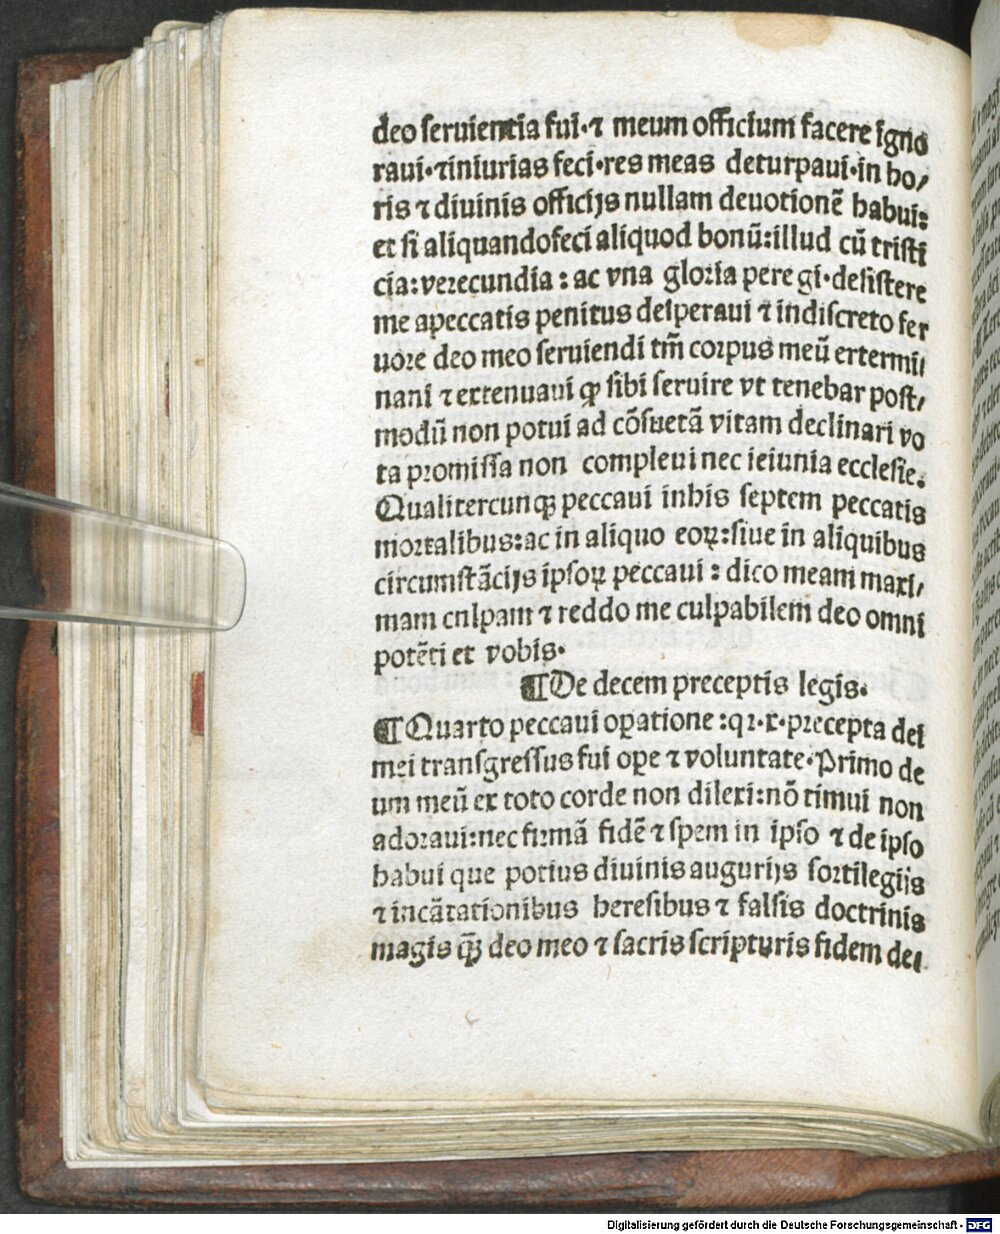 deo seruientia fui·⁊ meum officium facere igno
raui·⁊iniurias feci·res meas deturpaui·in ho/
ris ⁊ diuinis officijs nullam deuotionē habui:
et si aliquandofeci aliquod bonū:illud cū tristi
cia:verecundia : ac vna gloria pere gi·desistere
me apeccatis penitus desperaui ⁊ indiscreto fer
uore deo meo seruiendi tm̄ corpus meū extermi/
nani ⁊ extenuaui ꝙ sibi seruire vt tenebar post/
modū non potui ad cōsuetā vitam declinari vo
ta promissa non compleui nec ieiunia ecclesie.
Qualitercunqꝫ peccaui inhis septem peccatis
mortalibus:ac in aliquo eoꝝ:siue in aliquibus
circumstācijs ipsoꝝ peccaui : dico meam maxi/
mam culpam ⁊ reddo me culpabilem deo omni
potēti et vobis·
¶De decem preceptis legis.
¶Quarto peccaui oꝑatione :qꝛ·x·precepta dei
mei transgressus fui oꝑe ⁊ voluntate·Primo de
um meū ex toto corde non dilexi:nō timui non
adoraui:nec firmā fidē ⁊ spem in ipso ⁊ de ipso
habui que potius diuinis augurijs sortilegijs
⁊ incātationibus heresibus ⁊ falsis doctrinis
magis qꝫ̄ deo meo ⁊ sacris scripturis fidem dei
Digitalisierung gefördert durch die Deutsche Forschungsgemeinschaft - DFG